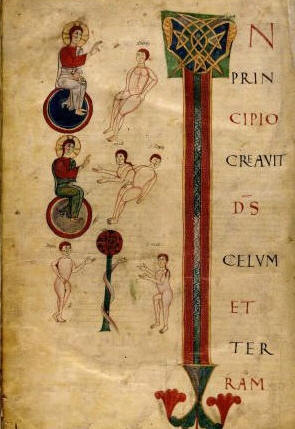 IN
PRIN
CIPIO
CREAVIT
D̅S̅
CELVM
ET
TER
RAM